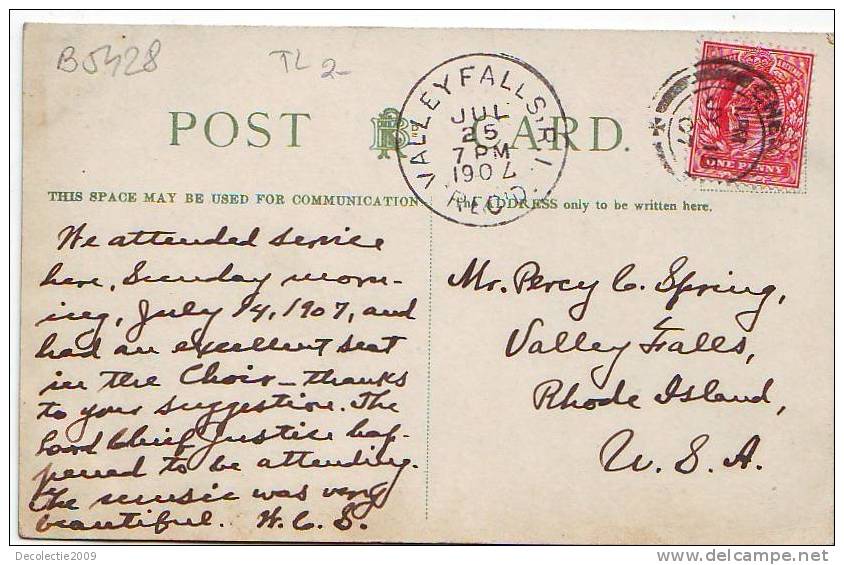 B5428
TL 2-
POST CARD.
VALLEY FALLS, R.I.
JUL
25
7 PM
1907
REC'D.
ONE PENNY
THIS SPACE MAY BE USED FOR COMMUNICATION
The ADDRESS only to be written here.
We attended service
here, Sunday morn-
ing, July 14, 1907, and
had an excellent seat
in the Choir - thanks
to your suggestion. The
Lord Chief Justice hap-
pened to be attending.
The music was very
beautiful. H. C. S.
Mr. Percy C. Spring,
Valley Falls,
Rhode Island,
U. S. A.
Decolectie2009
delcampe.net